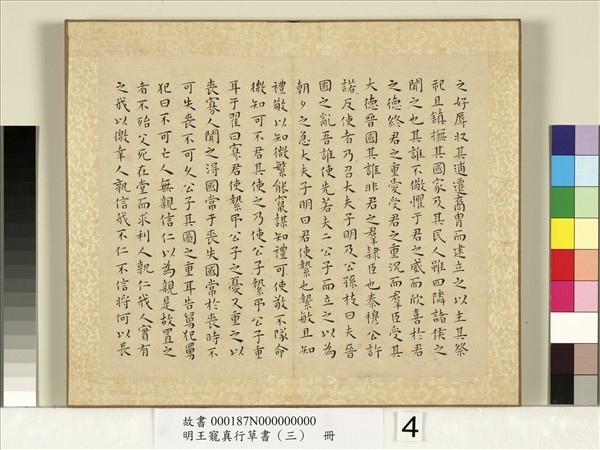 之好辱收其逋遷裔冑而建立之以主其祭
祀且鎮撫其國家及其民人雖四隣諸侯之
聞之也其誰不儆懼于君之威而欣喜於君
之德終君之重愛受君之重況而羣臣受其
大德晉國其誰非君之羣隸臣也秦穆公許
諾反使者乃召大夫子明及公孫枝曰夫晉
國之亂吾誰使先若夫二公子而立之以為
朝夕之急大夫子明曰君使縶也縶敏且知
禮敬以知微敏能竄謀知禮可使敬不隊命
微知可不君其使之乃使公子縶弔公子重
耳于翟曰寡君使縶弔公子之憂又重之以
喪寡人聞之得國常于喪失國常於喪時不
可失喪不可久公子其圖之重耳告舅犯舅
犯曰不可亡人無親信仁以為親是故置之
者不殆父死在堂而求利人孰仁我人實有
之我以徼幸人孰信我不仁不信將何以長
故書 000187N000000000
明王寵真行草書（三） 冊
4